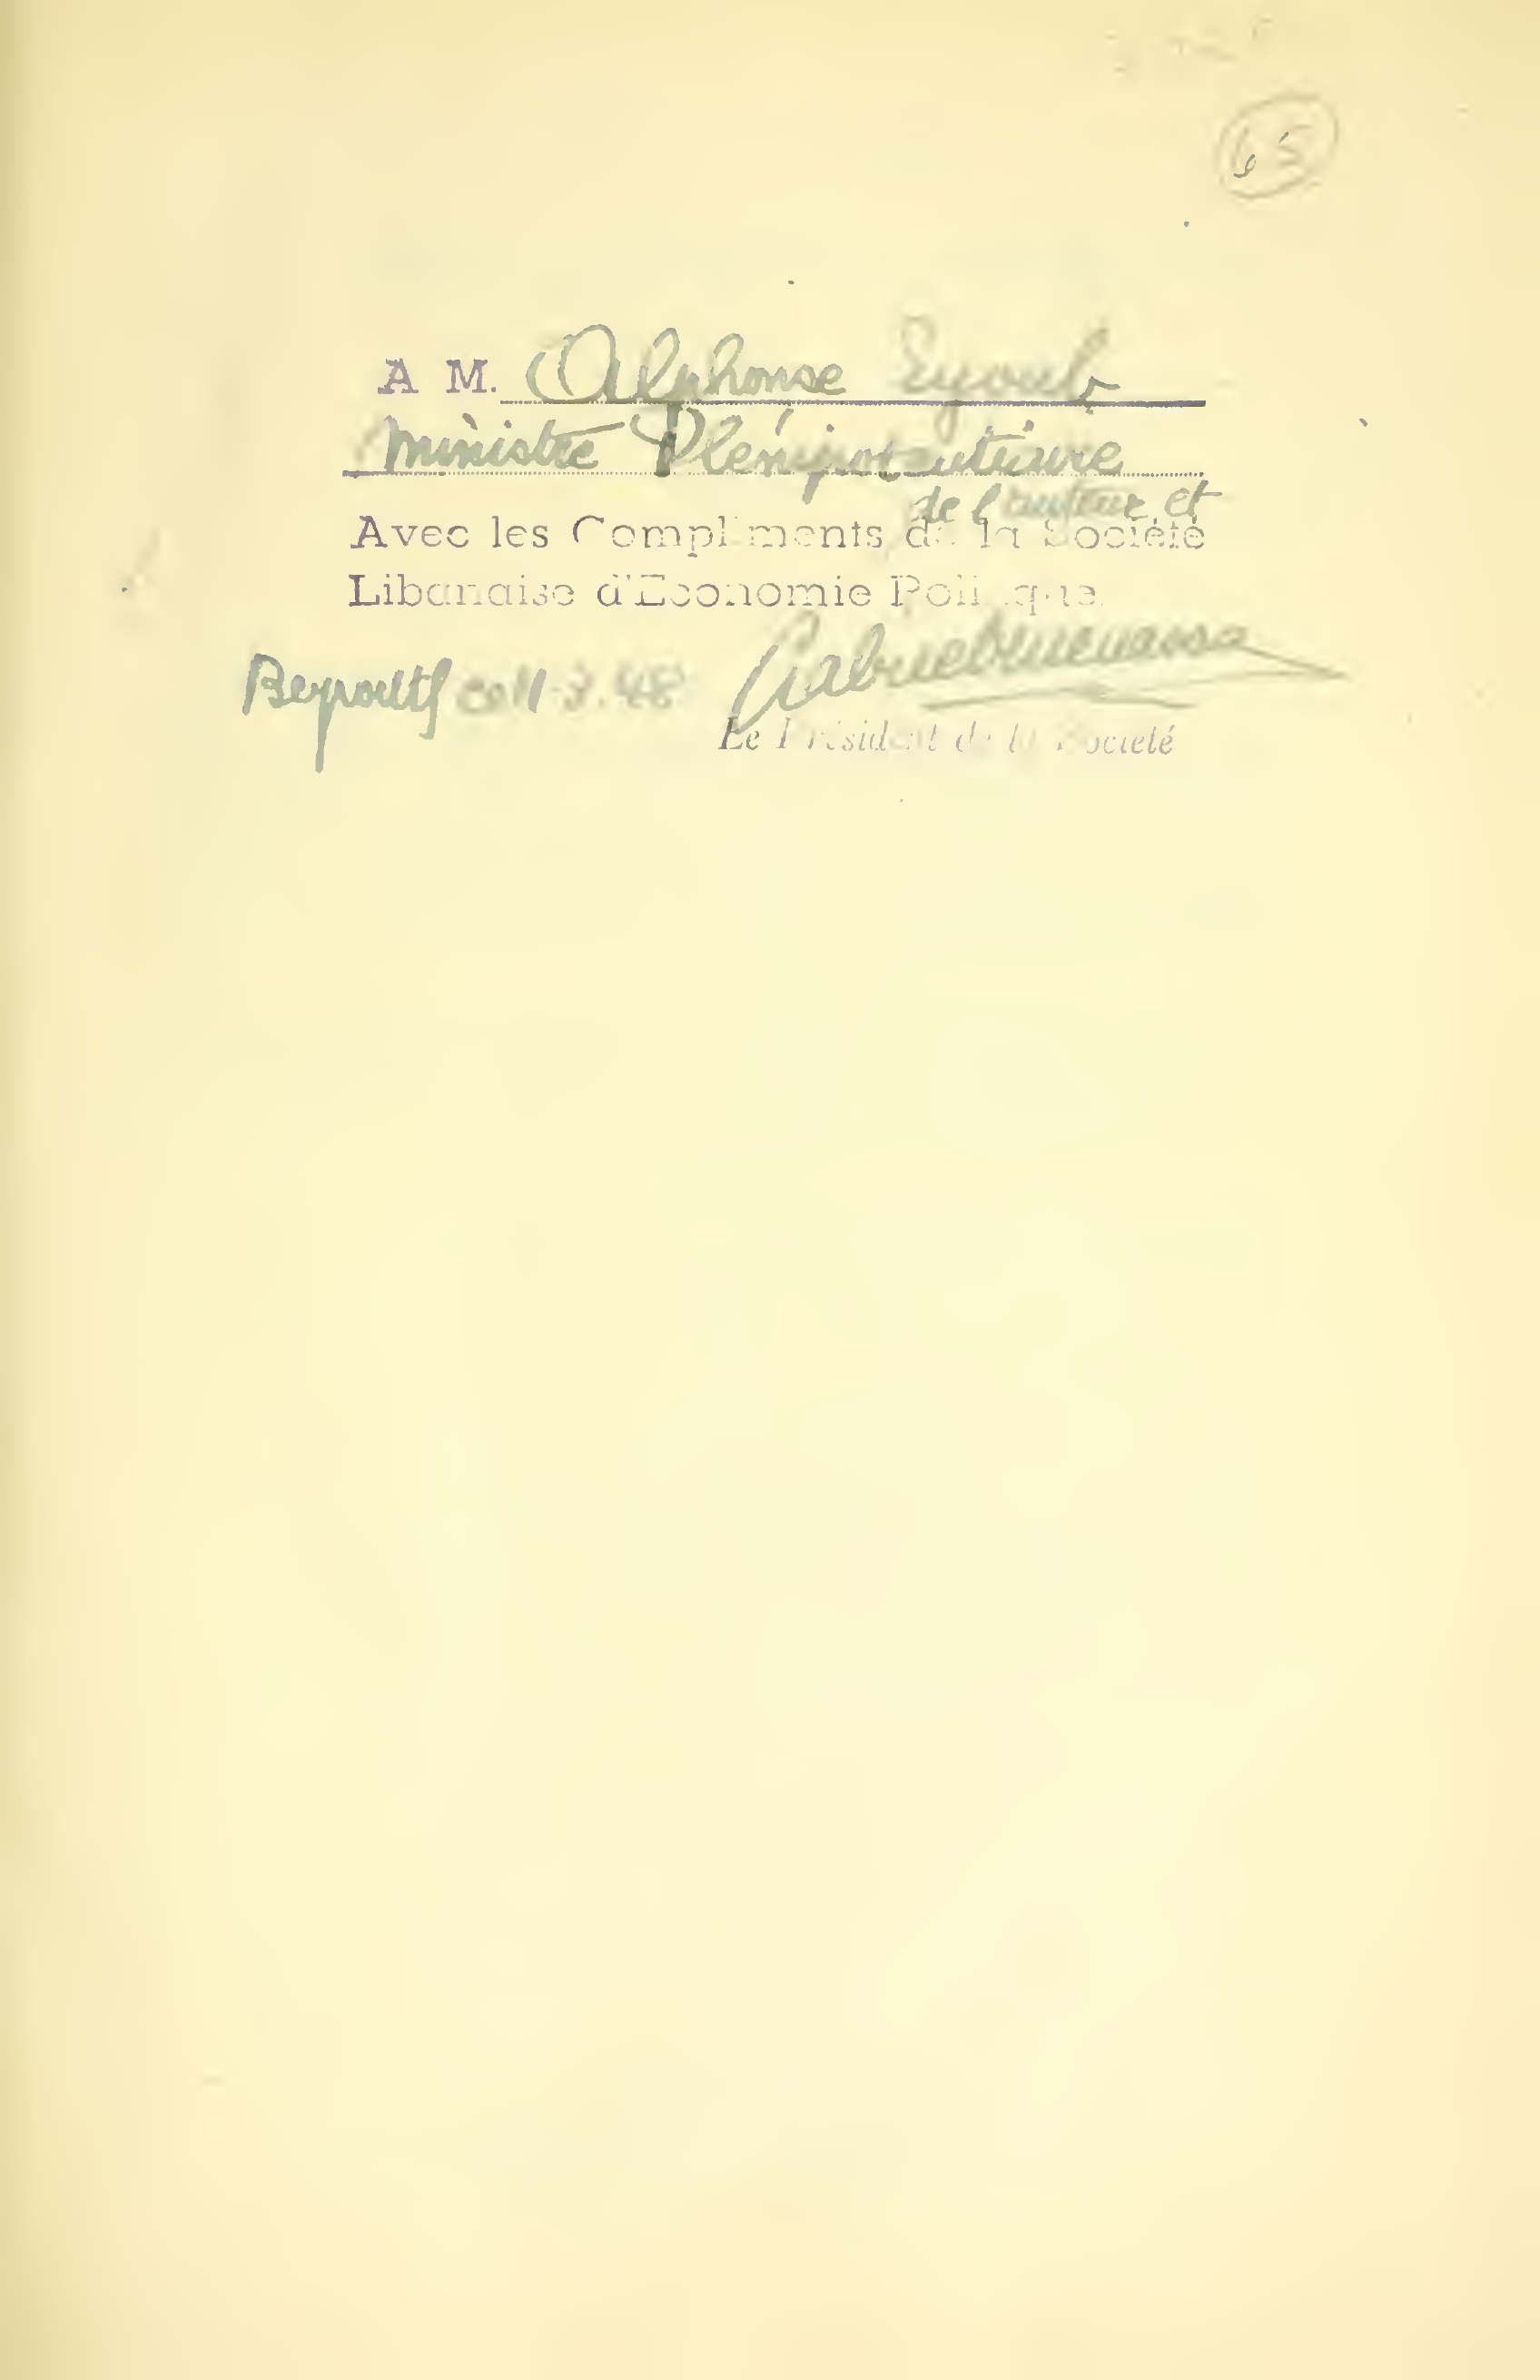 65
A M. Alphonse Eyoub
Ministre Plénipotentiaire
de l'auteur et
Avec les Compliments de la Société
Libanaise d'Economie Politique.
Beyrouth ce 11-3.48
Le Président de la Société